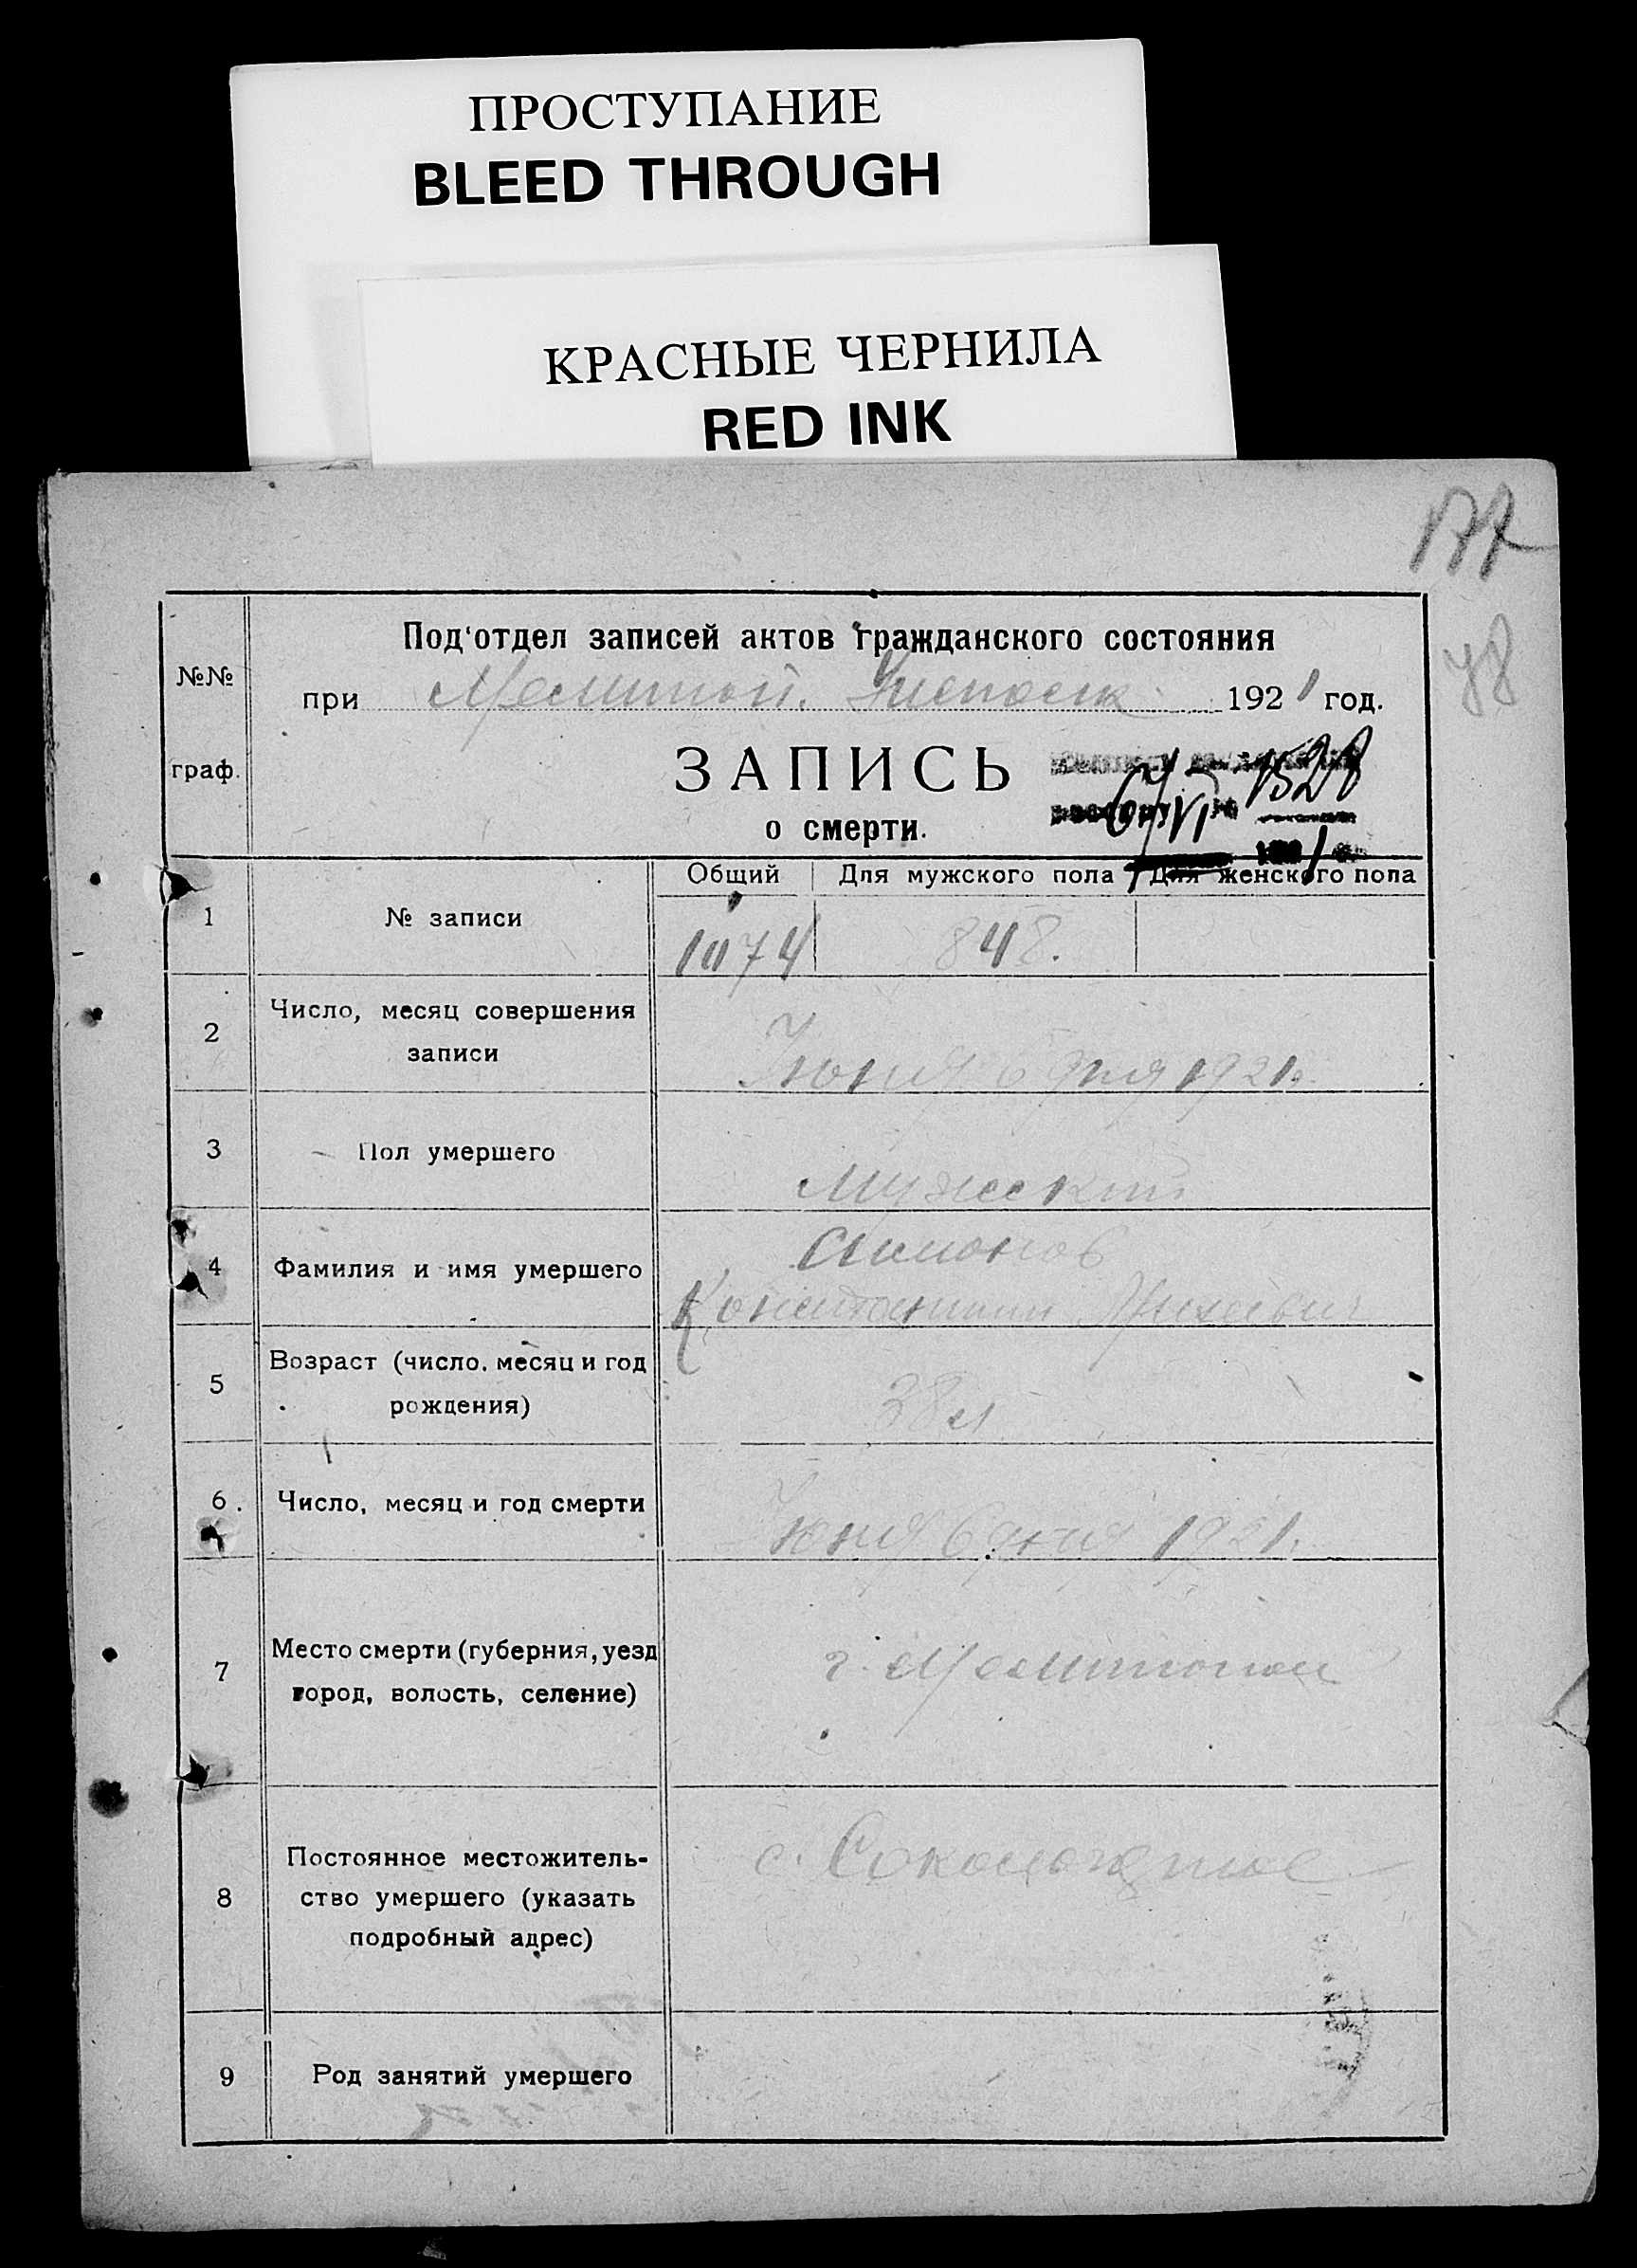 ПРОСТУПАНИЕ
BLEED THROUGH
КРАСНЫЕ ЧЕРНИЛА
RED INK
177
48
Под'отдел записей актов гражданского состояния
№№
при Мелитоп. 192 1 год.
граф.
ЗАПИСЬ
о смерти.
6/VI 1528
Общий Для мужского пола Для женского пола
1 № записи
1074 848.
2 Число, месяц совершения
записи
Июня 6 дня 1921.
3 Пол умершего
Мужской
4 Фамилия и имя умершего
Симонов
Константин
5 Возраст (число, месяц и год
рождения)
38 л
6. Число, месяц и год смерти
Июня 6 дня 1921.
7 Место смерти (губерния, уезд
город, волость, селение)
г. Мелитополь
8 Постоянное местожитель-
ство умершего (указать
подробный адрес)
с.
9 Род занятий умершего